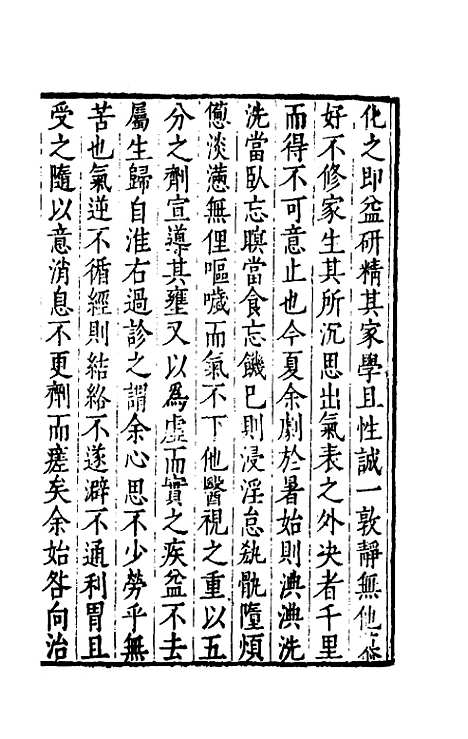 化之即益研精其家學且性誠一敦靜無他
好不修家生其所沉思出氣表之外決者千里
而得不可意止也今夏余劇於暑始則淟淟洗
洗當臥忘瞑當食忘饑已則浸淫怠骫骪墮煩
懣淡懣無俚嘔噦而氣不下他醫視之重以五
分之劑宣導其壅又以為虛而實之疾益不去
屬生歸自淮右過診之謂余心思不少勞乎無
苦也氣逆不循經則結絡不遂澼不通利胃且
受之隨以意消息不更劑而瘥矣余始咎向治